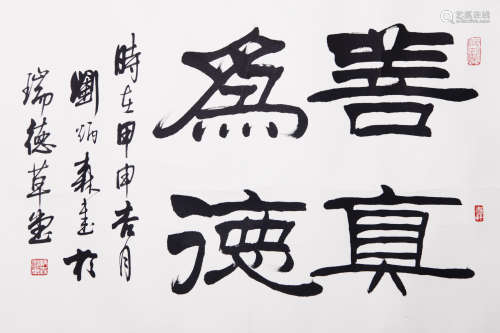 善真
為德
時在甲申吉月
劉炳森畫於
瑞德草堂